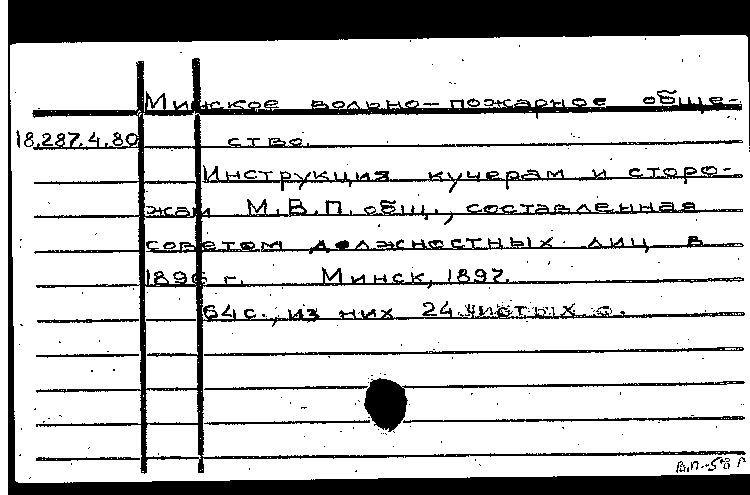 Минское вольно-пожарное обще-
18.287.4.80 ство.
Инструкция кучерам и сторо-
жам М.В.П. общ., составленная
советом должностных лиц в
1896 г. Минск, 1897.
64 с., из них 24 чистых с.